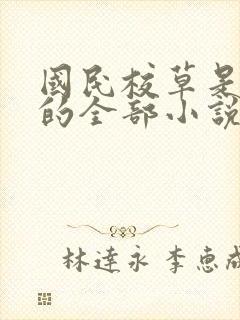 國民校草是
的全部小說
林達永 李惠成